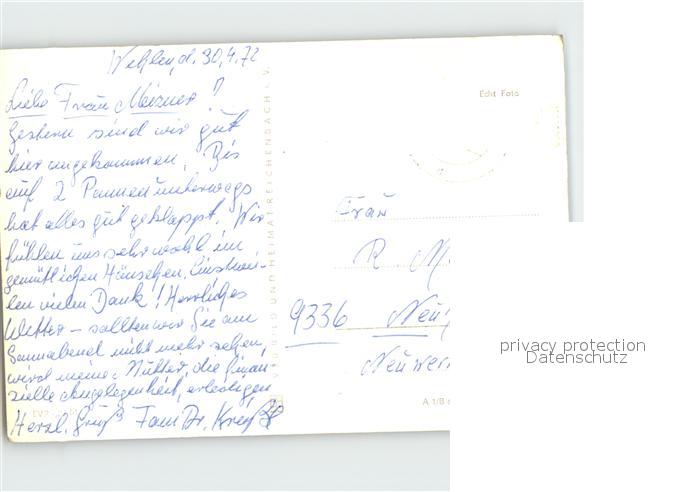 Wehlen, d. 30.4.72
Liebe Frau Meixner!
Gestern sind wir gut
hier angekommen. Bis
auf 2 Pannen unterwegs
hat alles gut geklappt. Wir
fühlen uns sehr wohl im
gemütlichen Häuschen. Einstwei-
len vielen Dank! Herrliches
Wetter – sollten wir Sie am
Sonnabend nicht mehr sehen,
wird meine Mutter die finan-
zielle Angelegenheit erledigen
Herzl. Grüß Fam. Dr.
BILD UND HEIMAT REICHENBACH I. V.
Echt Foto
Frau
R M
9336 Neu
Neuwer
A 1/B
privacy protection
Datenschutz